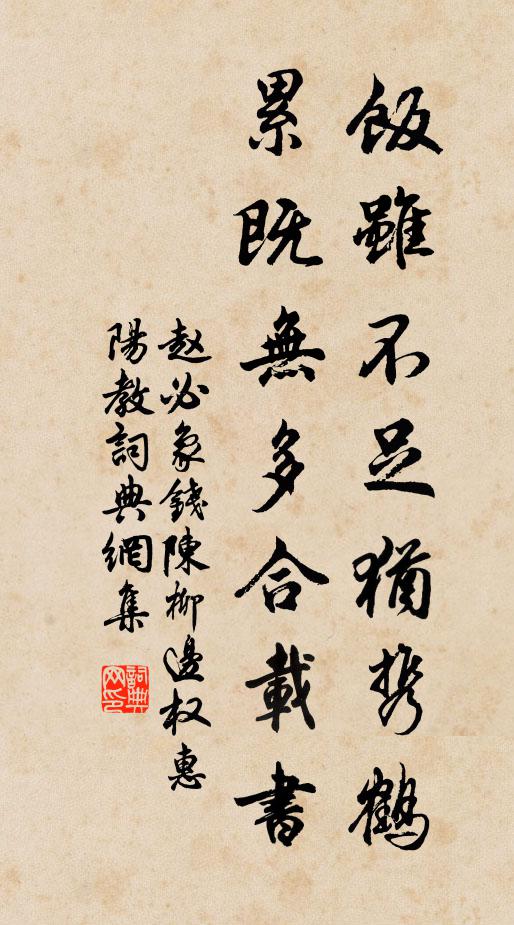 飯雖不足猶携鶴
累既無多合載書
赵必象錢陳柳邊权惠
陽教詞典網集
詞典网印